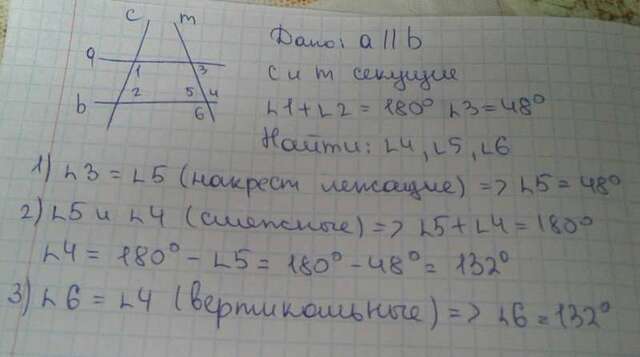 c m
a
1 3
2 5 4
b
6
Дано: a || b
c и m секущие
∠1+∠2 = 180° ∠3 = 48°
Найти: ∠4, ∠5, ∠6
1) ∠3 = ∠5 (накрест лежащие) => ∠5 = 48°
2) ∠5 и ∠4 (смежные) => ∠5+∠4 = 180°
∠4 = 180° - ∠5 = 180° - 48° = 132°
3) ∠6 = ∠4 (вертикальные) => ∠6 = 132°